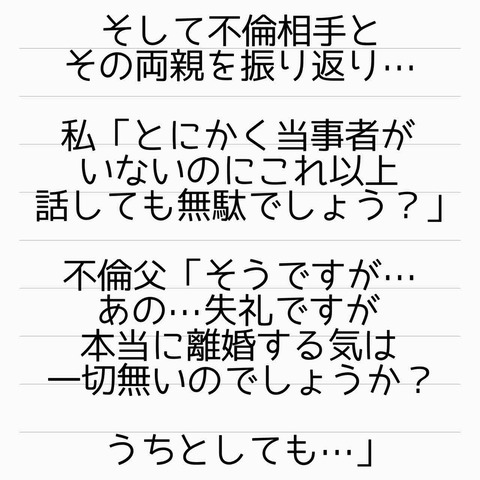 そして不倫相手と
その両親を振り返り…
私「とにかく当事者が
いないのにこれ以上
話しても無駄でしょう？」
不倫父「そうですが…
あの…失礼ですが
本当に離婚する気は
一切無いのでしょうか？
うちとしても…」